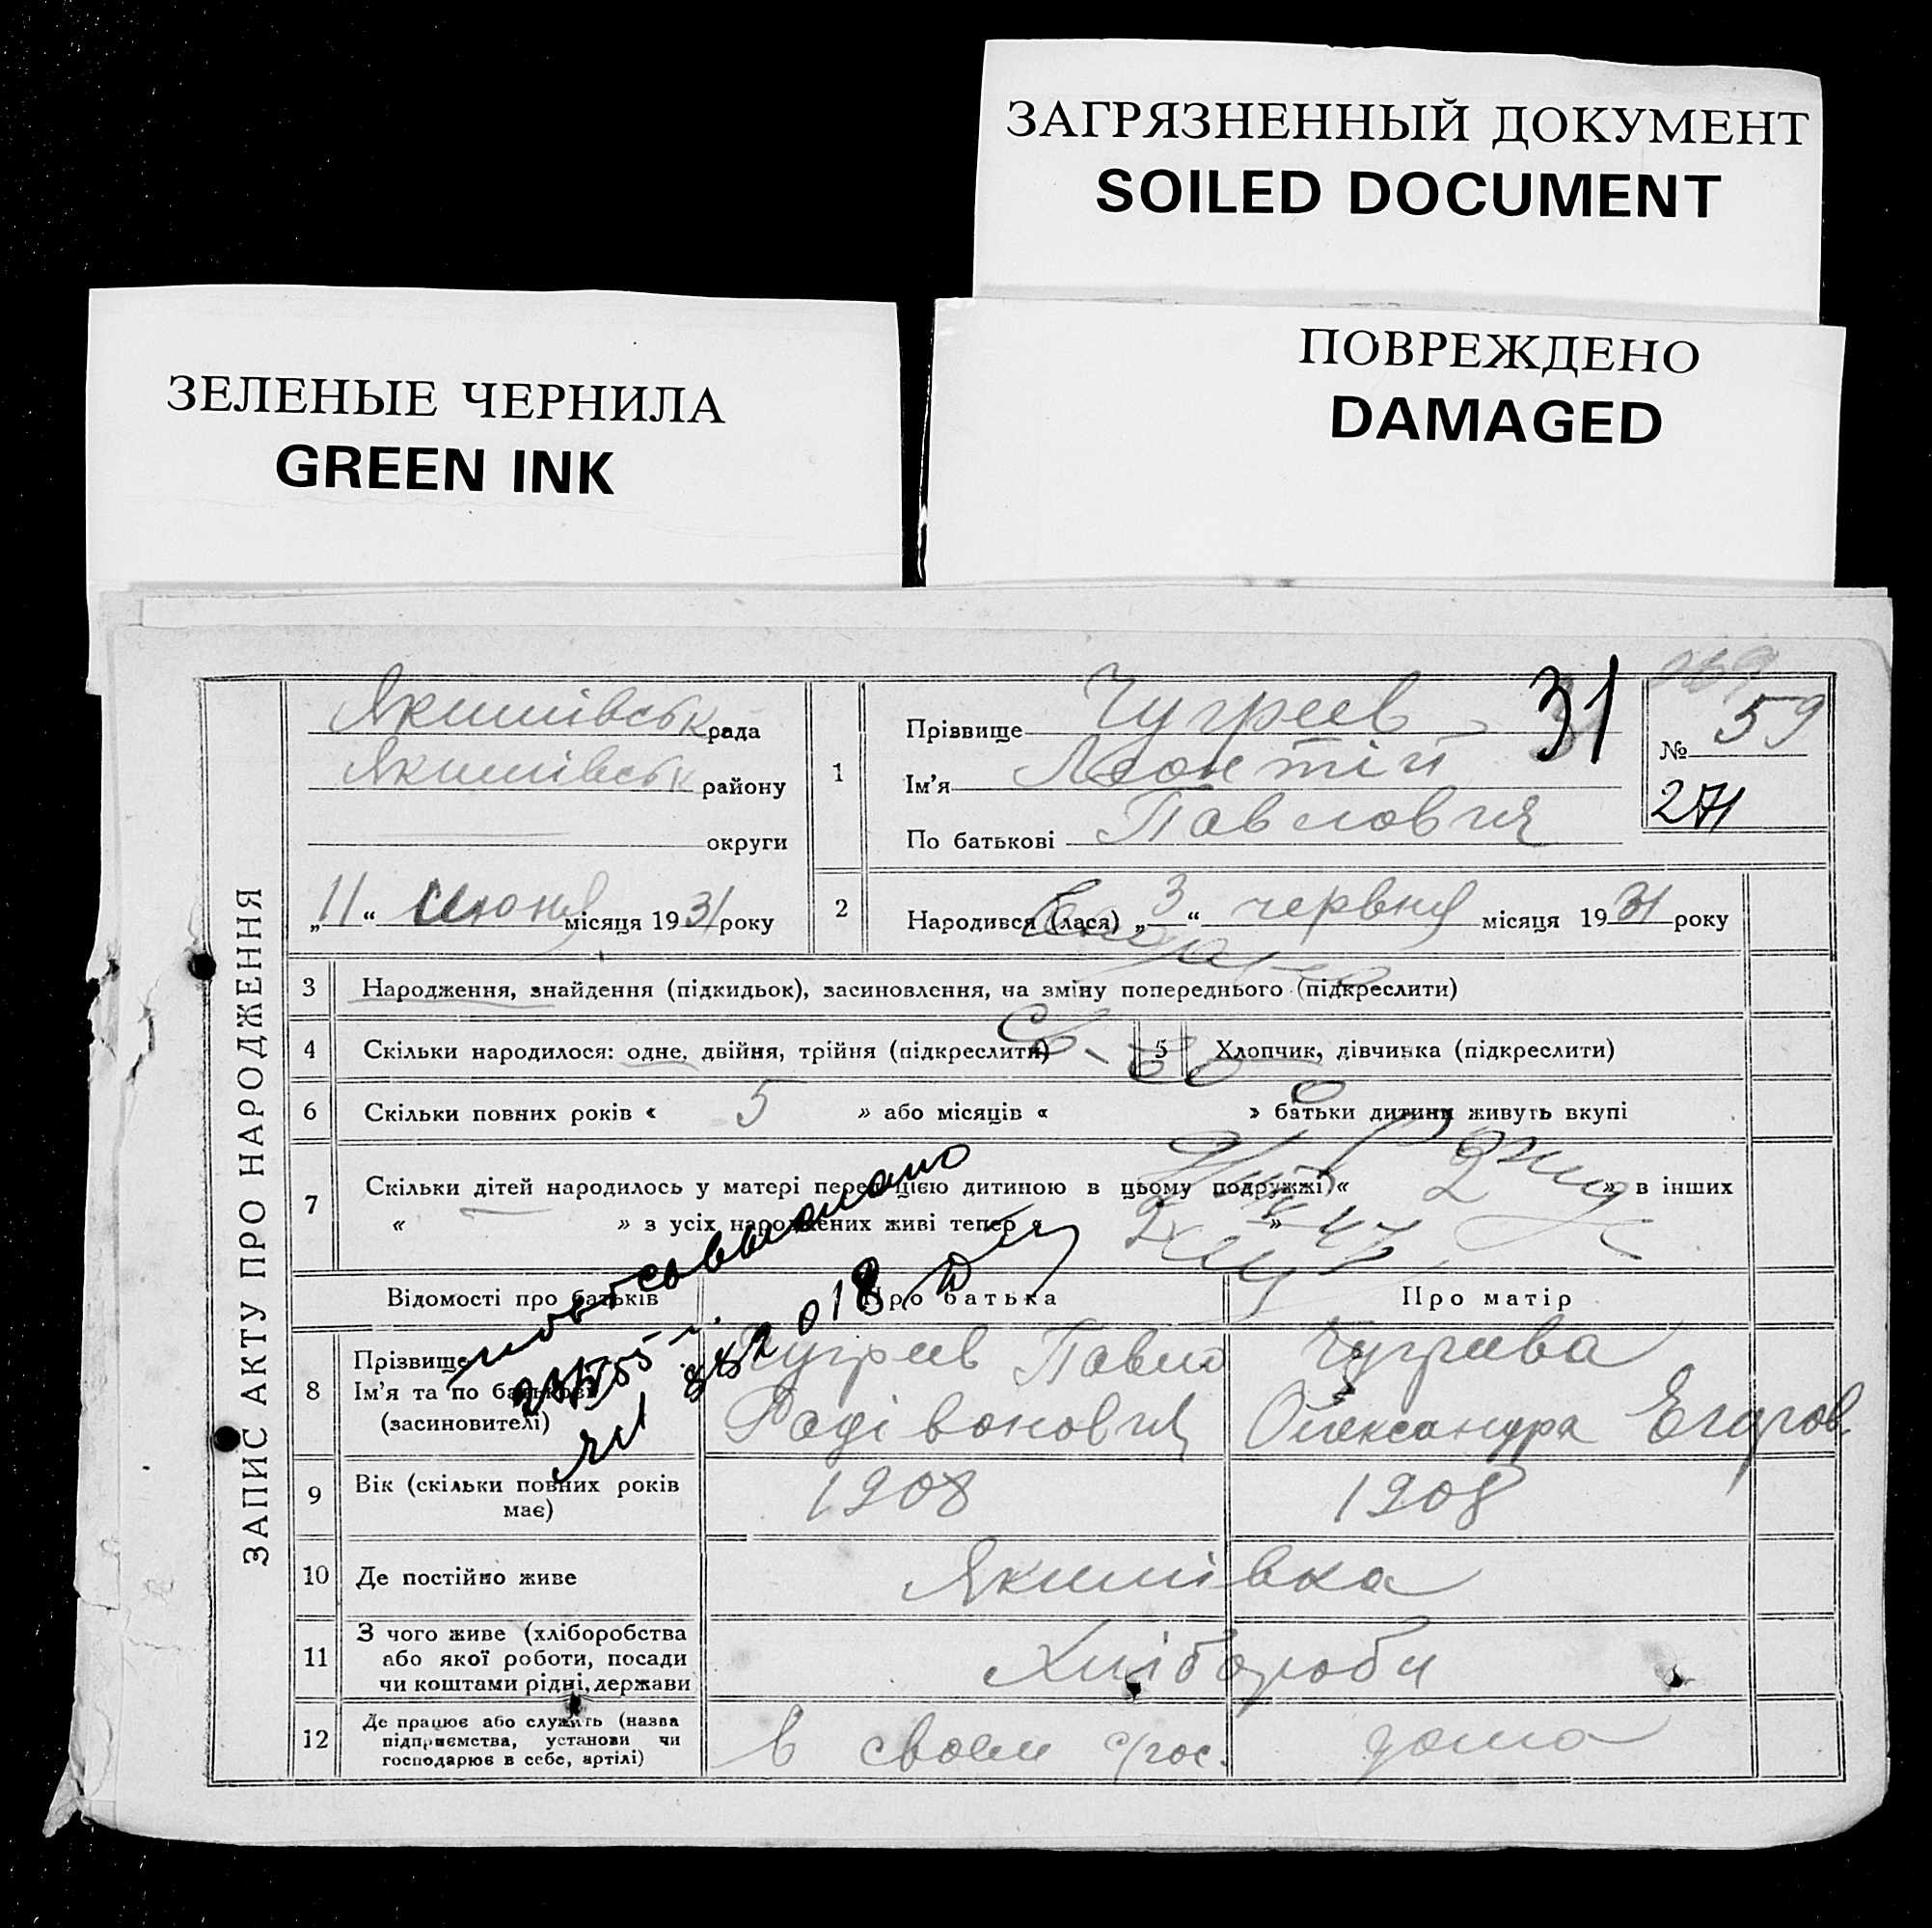 ЗАГРЯЗНЕННЫЙ ДОКУМЕНТ
SOILED DOCUMENT
ЗЕЛЕНЫЕ ЧЕРНИЛА
GREEN INK
ПОВРЕЖДЕНО
DAMAGED
ЗАПИС АКТУ ПРО НАРОДЖЕННЯ
Якимівськ рада
Якимівськ району
округи
„11“ июня місяця 1931 року
1
Прізвище Чугреев
31
Ім'я Леонтій
По батькові Павлович
№ 59
271
2
Народився (лася) „3“ червня місяця 1931 року
3 Народження, знайдення (підкидьок), засиновлення, на зміну попереднього (підкреслити)
4 Скільки народилося: одне, двійня, трійня (підкреслити)
5 Хлопчик, дівчинка (підкреслити)
6 Скільки повних років « 5 » або місяців « » батьки дитини живуть вкупі
7 Скільки дітей народилось у матері перед цією дитиною в цьому подружжі « 2 » в інших
« » з усіх народжених живі тепер « 2 »
Відомості про батьків
Про батька
Про матір
8
Прізвище
Ім'я та по батькові
(засновителі)
Чугреев Павло
Радівонович
Чугреева
Олександра Егоров.
9 Вік (скільки повних років
має)
1908
1908
10 Де постійно живе
Якимівка
11
З чого живе (хліборобства
або якої роботи, посади
чи коштами рідні, держави
Хлібороби
12
Де працює або служить (назва
підприємства, установи чи
господарює в себе, артілі)
в своем с/гос.
дома